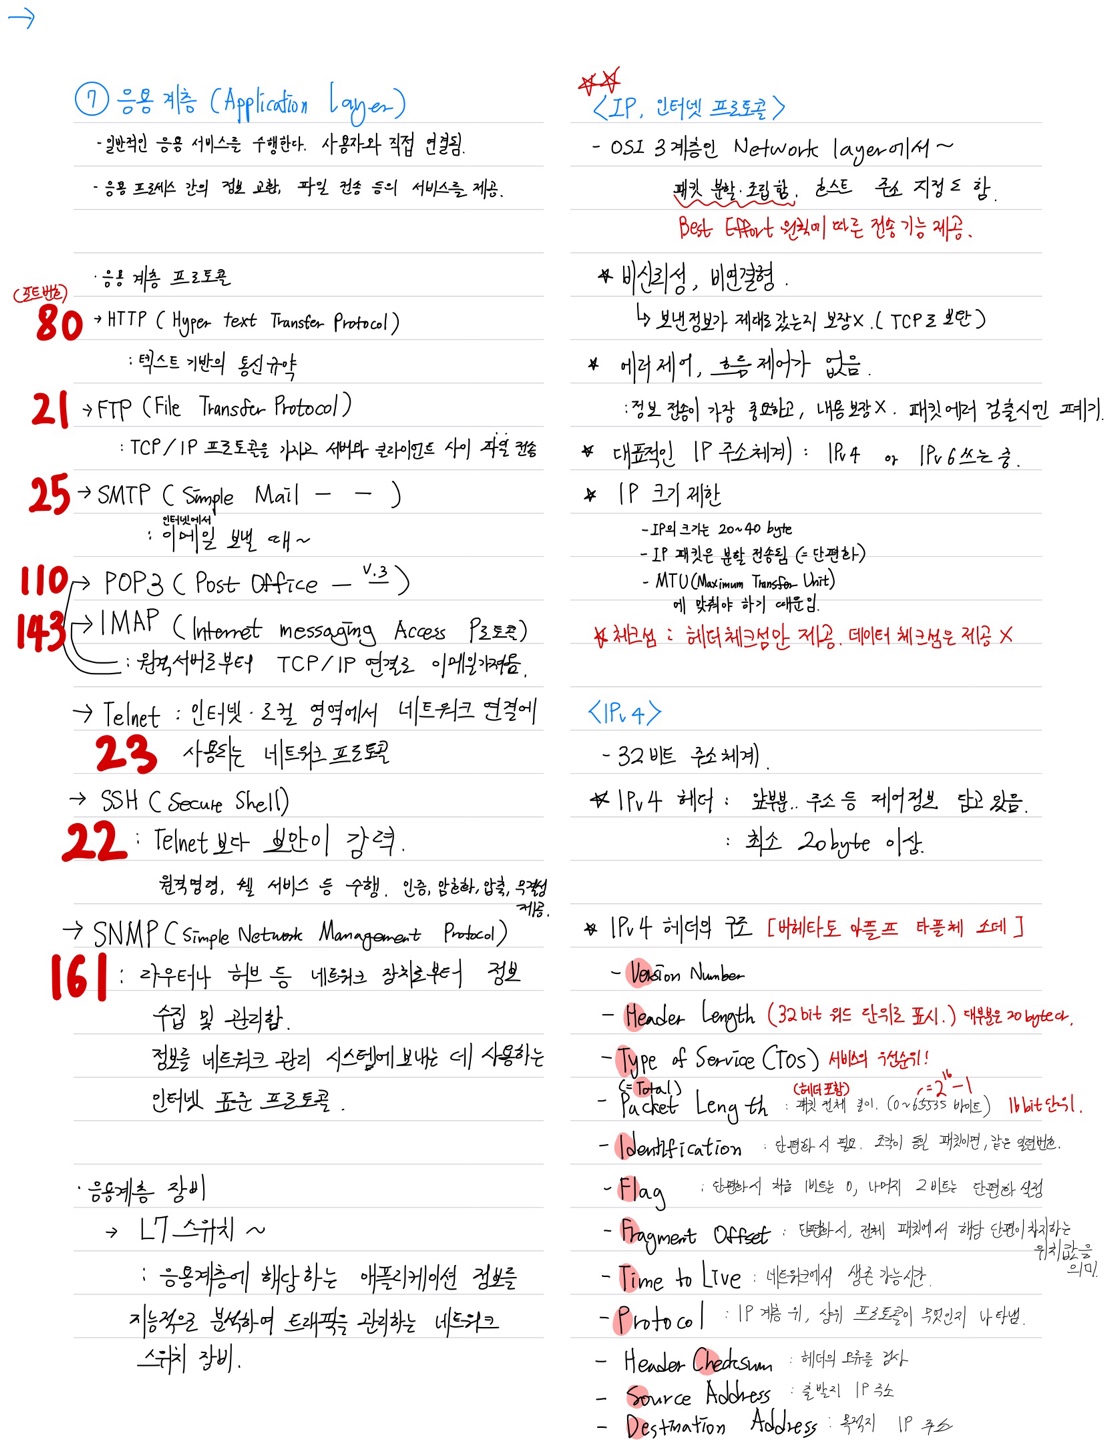 →
⑦ 응용 계층 (Application Layer)
- 일반적인 응용 서비스를 수행한다. 사용자와 직접 연결됨.
- 응용 프로세스 간의 정보 교환, 파일 전송 등의 서비스를 제공.
· 응용 계층 프로토콜
(포트번호)
80 → HTTP (Hyper text Transfer Protocol)
: 텍스트 기반의 통신규약
21 → FTP (File Transfer Protocol)
: TCP/IP 프로토콜을 가지고 서버와 클라이언트 사이 파일 전송
25 → SMTP (Simple Mail - - )
인터넷에서
: 이메일 보낼 때~
110 → POP3 (Post Office - v.3)
143 → IMAP (Internet messaging Access 프로토콜)
: 원격서버로부터 TCP/IP 연결로 이메일가져옴.
→ Telnet : 인터넷·로컬 영역에서 네트워크 연결에
23 사용되는 네트워크 프로토콜
→ SSH (Secure Shell)
22 : Telnet보다 보안이 강력.
원격명령, 쉘 서비스 등 수행. 인증, 암호화, 압축, 무결성
제공.
→ SNMP (Simple Network Management Protocol)
161 : 라우터나 허브 등 네트워크 장치로부터 정보
수집 및 관리함.
정보를 네트워크 관리 시스템에 보내는 데 사용하는
인터넷 표준 프로토콜.
· 응용계층 장비
→ L7 스위치 ~
: 응용계층에 해당하는 애플리케이션 정보를
지능적으로 분석하여 트래픽을 관리하는 네트워크
스위치 장비.
☆☆
<IP, 인터넷 프로토콜>
- OSI 3계층인 Network layer에서~
패킷 분할·조립함. 호스트 주소 지정도 함.
Best Effort 원칙에 따른 전송기능 제공.
☆ 비신뢰성, 비연결형.
↳ 보낸정보가 제대로 갔는지 보장X. (TCP로 보완)
★ 에러 제어, 흐름 제어가 없음.
: 정보 전송이 가장 중요하고, 내용보장X. 패킷에러 검출시엔 폐기.
★ 대표적인 IP 주소체계) : IPv4 or IPv6 쓰는 중.
☆ IP 크기 제한
- IP의 크기는 20~40 byte
- IP 패킷은 분할 전송됨 (=단편화)
- MTU(Maximum Transfer Unit)
에 맞춰야 하기 때문임.
☆체크섬 : 헤더체크섬만 제공. 데이터 체크섬은 제공 X
<IPv4>
- 32비트 주소체계).
☆ IPv4 헤더 : 앞부분.. 주소 등 제어정보 담고 있음.
: 최소 20byte 이상.
★ IPv4 헤더의 구조 [버헤타토 아플프 타플체 소데]
- Version Number
- Header Length (32bit 워드 단위로 표시.) 대부분은 20byte다.
- Type of Service (TOS) 서비스의 우선순위!
(=Total) (헤더포함) =2¹⁶-1
- Packet Length : 패킷 전체 길이. (0~65535 바이트) 16bit단위.
- Identification : 단편화시 필요. 조각이 동일 패킷이면, 같은 일련번호.
- Flag : 단편화시 처음 1비트는 0, 나머지 2비트는 단편화 설정
- Fragment Offset : 단편화시, 전체 패킷에서 해당 단편이 차지하는
위치값을
의미.
- Time to Live : 네트워크에서 생존 가능시간.
- Protocol : IP 계층 위, 상위 프로토콜이 무엇인지 나타냄.
- Header Checksum : 헤더의 오류를 검사
- Source Address : 출발지 IP 주소
- Destination Address : 목적지 IP 주소